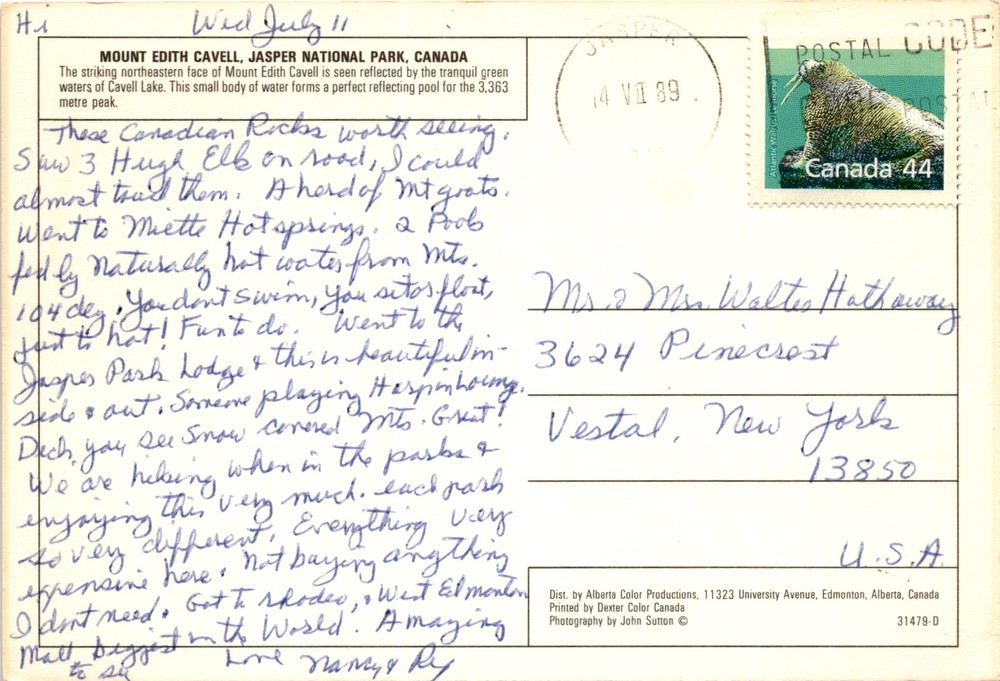 Hi Wed July 11
MOUNT EDITH CAVELL, JASPER NATIONAL PARK, CANADA
The striking northeastern face of Mount Edith Cavell is seen reflected by the tranquil green
waters of Cavell Lake. This small body of water forms a perfect reflecting pool for the 3,363
metre peak.
These Canadian Rocks worth seeing.
Saw 3 Hugh Elk on road, I could
almost them. A herd of Mt goats.
Went to Miette Hotsprings. 2 Pools
fed by Naturally hot water from Mts.
104 deg. You dont swim, you sit or float,
just to hot! Fun to do. Went to the
Jasper Park Lodge & this is beautiful in-
side & out. Someone playing Harp in
Deck you see Snow covered Mts. Great!
We are hiking when in the parks &
enjoying this very much. each park
so very different. Everything very
expensive here. Not buying anything
I dont need. Got to Rodeo, & West Edmonton
Mall Biggest in the World. Amazing
to see
Love Nancy & Rex
JASPER
14 VII 89
POSTAL CODE
POSTAL
Atlantic Walrus
Canada 44
Mr. & Mrs. Walter Hathaway
3624 Pinecrest
Vestal, New York
13850
U.S.A.
Dist. by Alberta Color Productions, 11323 University Avenue, Edmonton, Alberta, Canada
Printed by Dexter Color Canada
Photography by John Sutton ©
31479-D